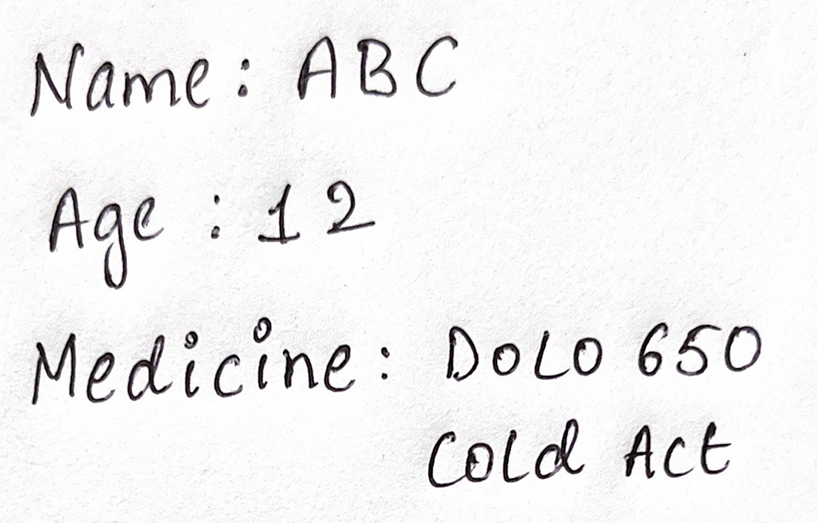 Name: ABC
Age : 12
Medicine: DOLO 650
Cold Act